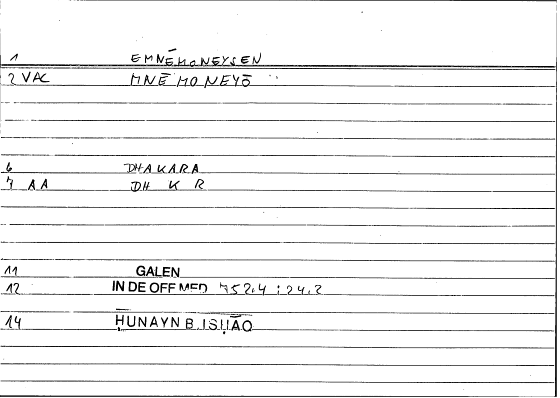 1 EMNĒMONEYSEN
2 VAC MNĒMONEYŌ
6 DHAKARA
7 AA DH K R
11 GALEN
12 IN DE OFF MED 752.4 : 24.2
14 ḤUNAYN B. ISḤĀQ